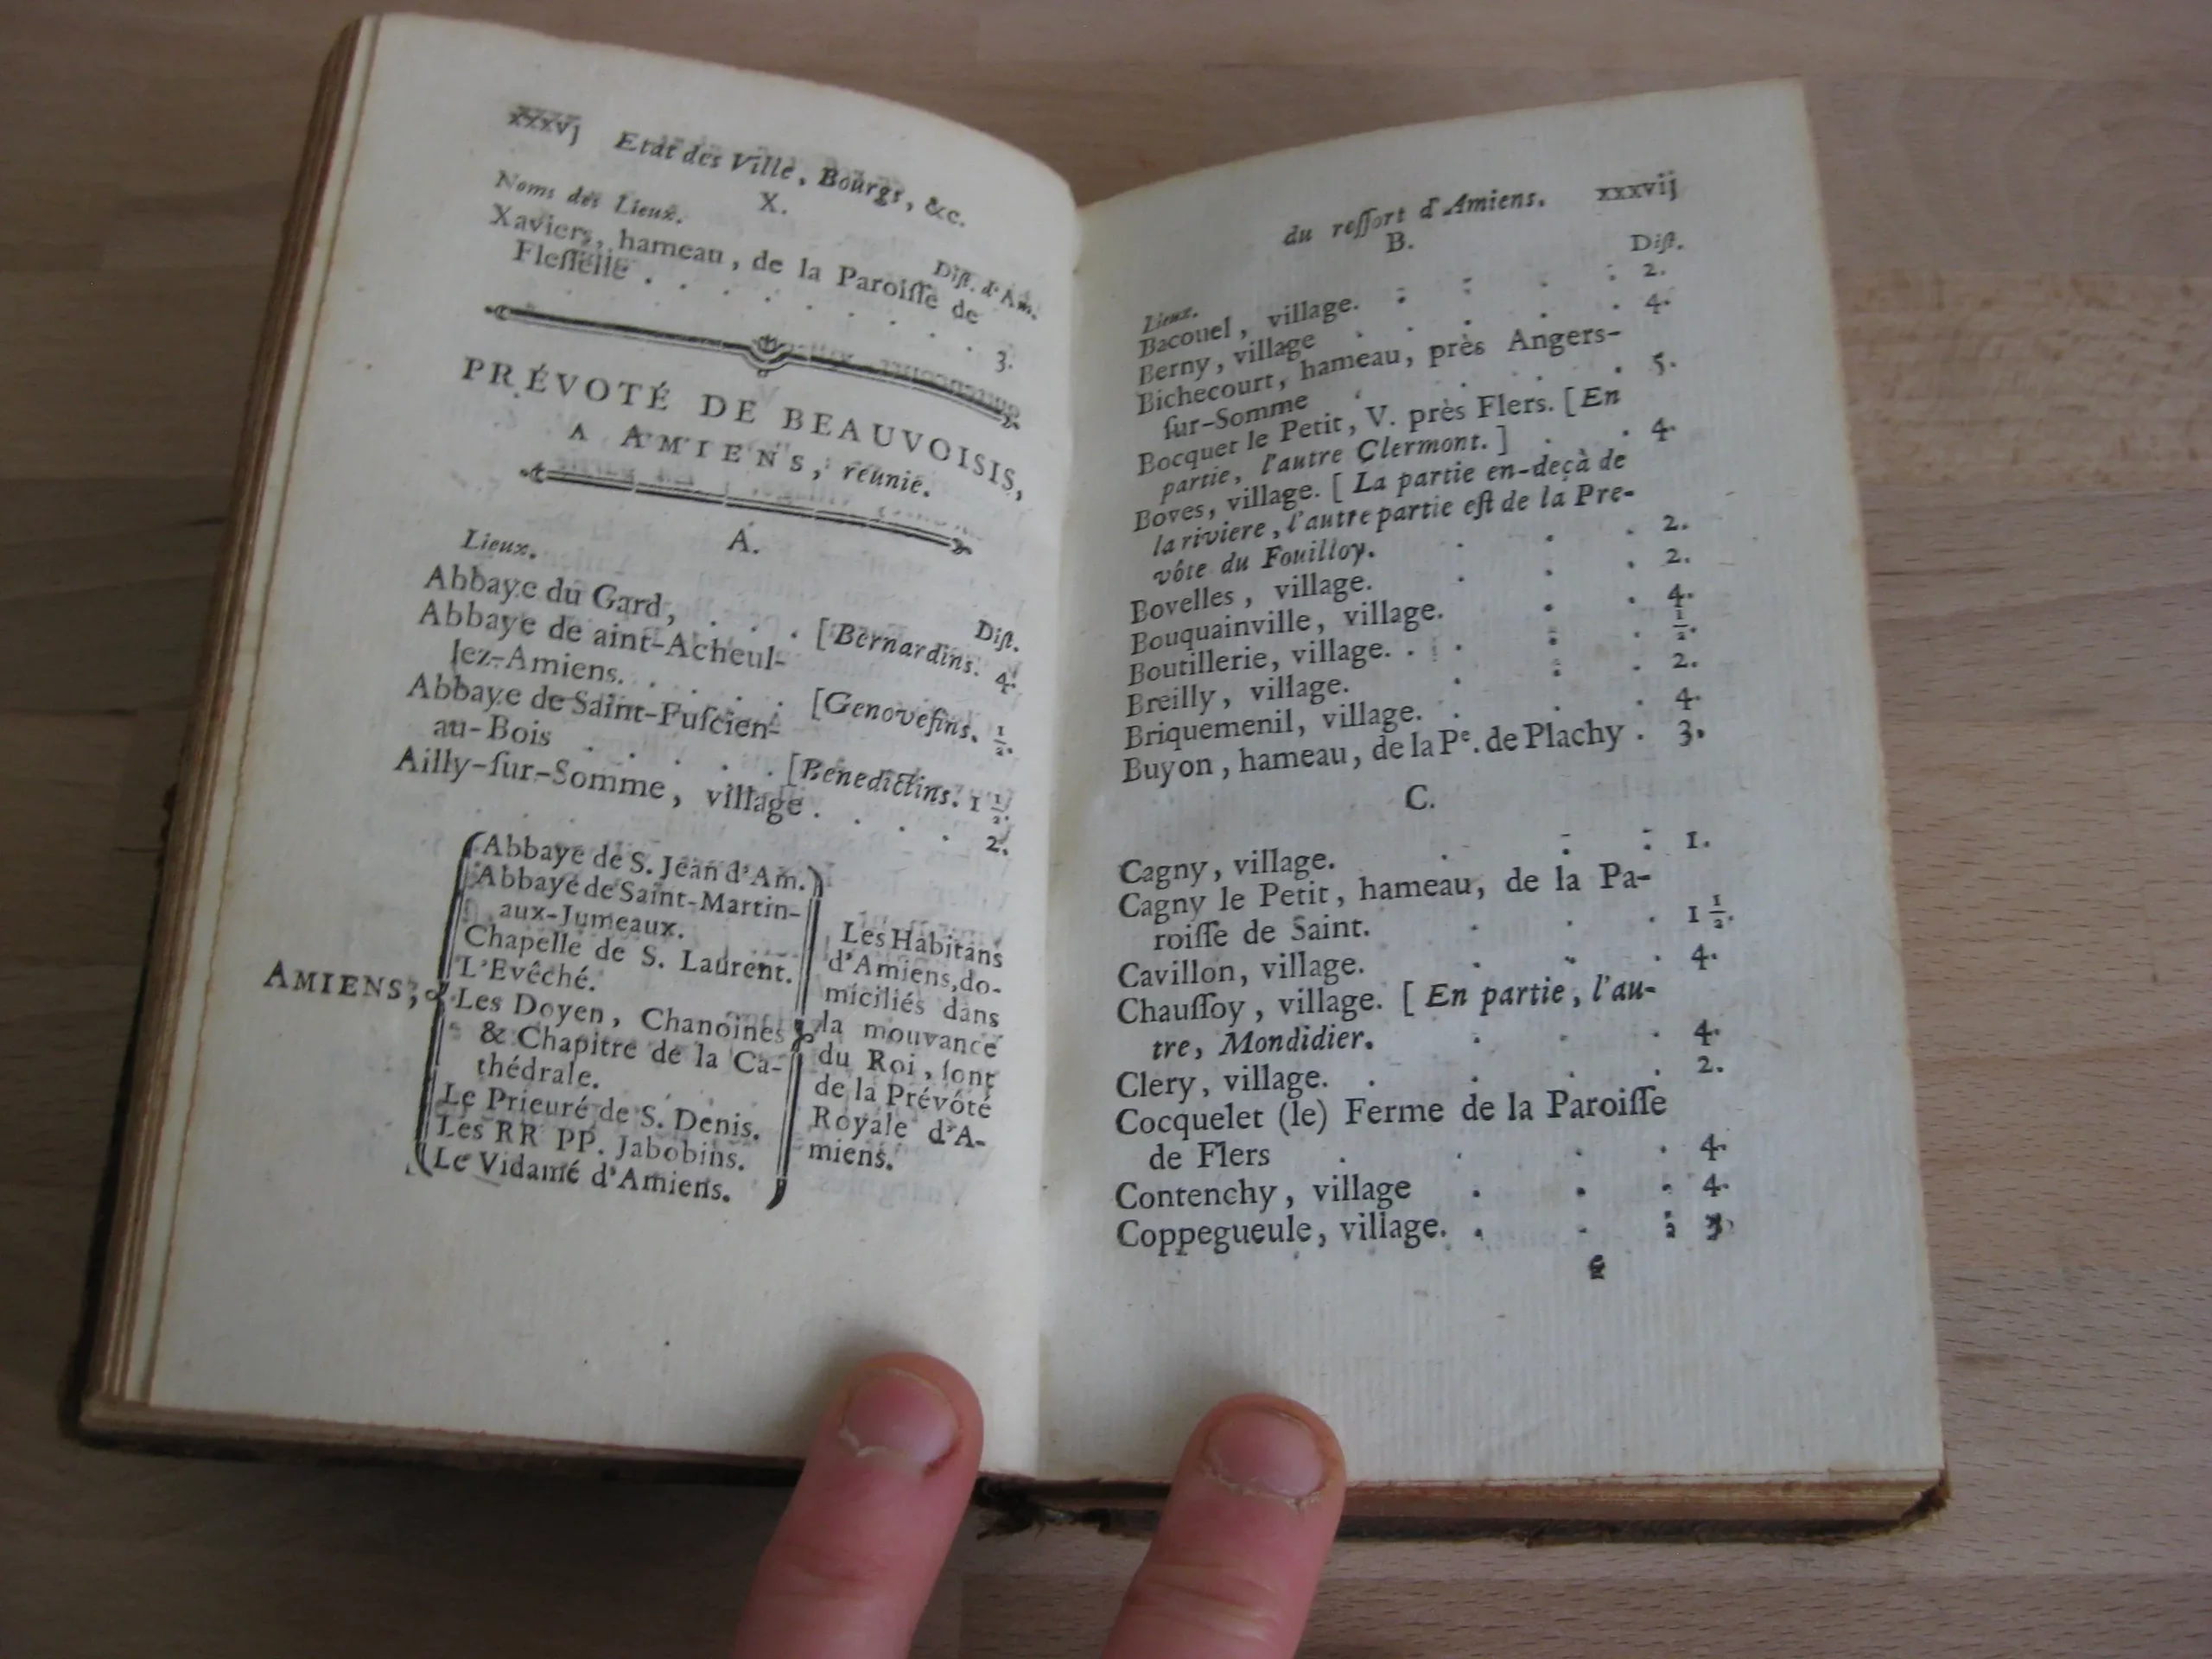 xxxvj Etat des Ville, Bourgs, &c.
X.
Noms des Lieux. Dist. d'Am.
Xaviers, hameau, de la Paroisse de
Flesselle . . . . . . . . 3.
PRÉVOTÉ DE BEAUVOISIS,
A AMIENS, réunie.
A.
Lieux. Dist.
Abbaye du Gard, . . . [Bernardins. 4.
Abbaye de aint-Acheul-
lez-Amiens. . . . . [Genovefins. 1/2.
Abbaye de Saint-Fuscien-
au-Bois . . . . . [Benedictins. 1 1/2.
Ailly-sur-Somme, village . . . . 2.
AMIENS,
Abbaye de S. Jean d'Am.
Abbaye de Saint-Martin-
aux-Jumeaux.
Chapelle de S. Laurent.
L'Evêché.
Les Doyen, Chanoines
& Chapitre de la Ca-
thédrale.
Le Prieuré de S. Denis.
Les RR PP. Jabobins.
Le Vidamé d'Amiens.
Les Habitans
d'Amiens, do-
miciliés dans
la mouvance
du Roi, sont
de la Prévôté
Royale d'A-
miens.
du ressort d'Amiens. xxxvij
B.
Lieux. Dist.
Bacouel, village. . . . . 2.
Berny, village . . . . . 4.
Bichecourt, hameau, près Angers-
sur-Somme . . . . . 5.
Bocquet le Petit, V. près Flers. [En
partie, l'autre Clermont.] . . 4.
Boves, village. [La partie en-deçà de
la riviere, l'autre partie est de la Pre-
vôte du Fouilloy. . . . 2.
Bovelles, village. . . . 2.
Bouquainville, village. . . 4.
Boutillerie, village. . . . . 1/2.
Breilly, village. . . . 2.
Briquemenil, village. . . . 4.
Buyon, hameau, de la Pe. de Plachy . 3.
C.
Cagny, village. . . . 1.
Cagny le Petit, hameau, de la Pa-
roisse de Saint. . . . 1 1/2.
Cavillon, village. . . . 4.
Chaussoy, village. [En partie, l'au-
tre, Mondidier. . . . 4.
Clery, village. . . . . 2.
Cocquelet (le) Ferme de la Paroisse
de Flers . . . . 4.
Contenchy, village . . . 4.
Coppegueule, village. . . .